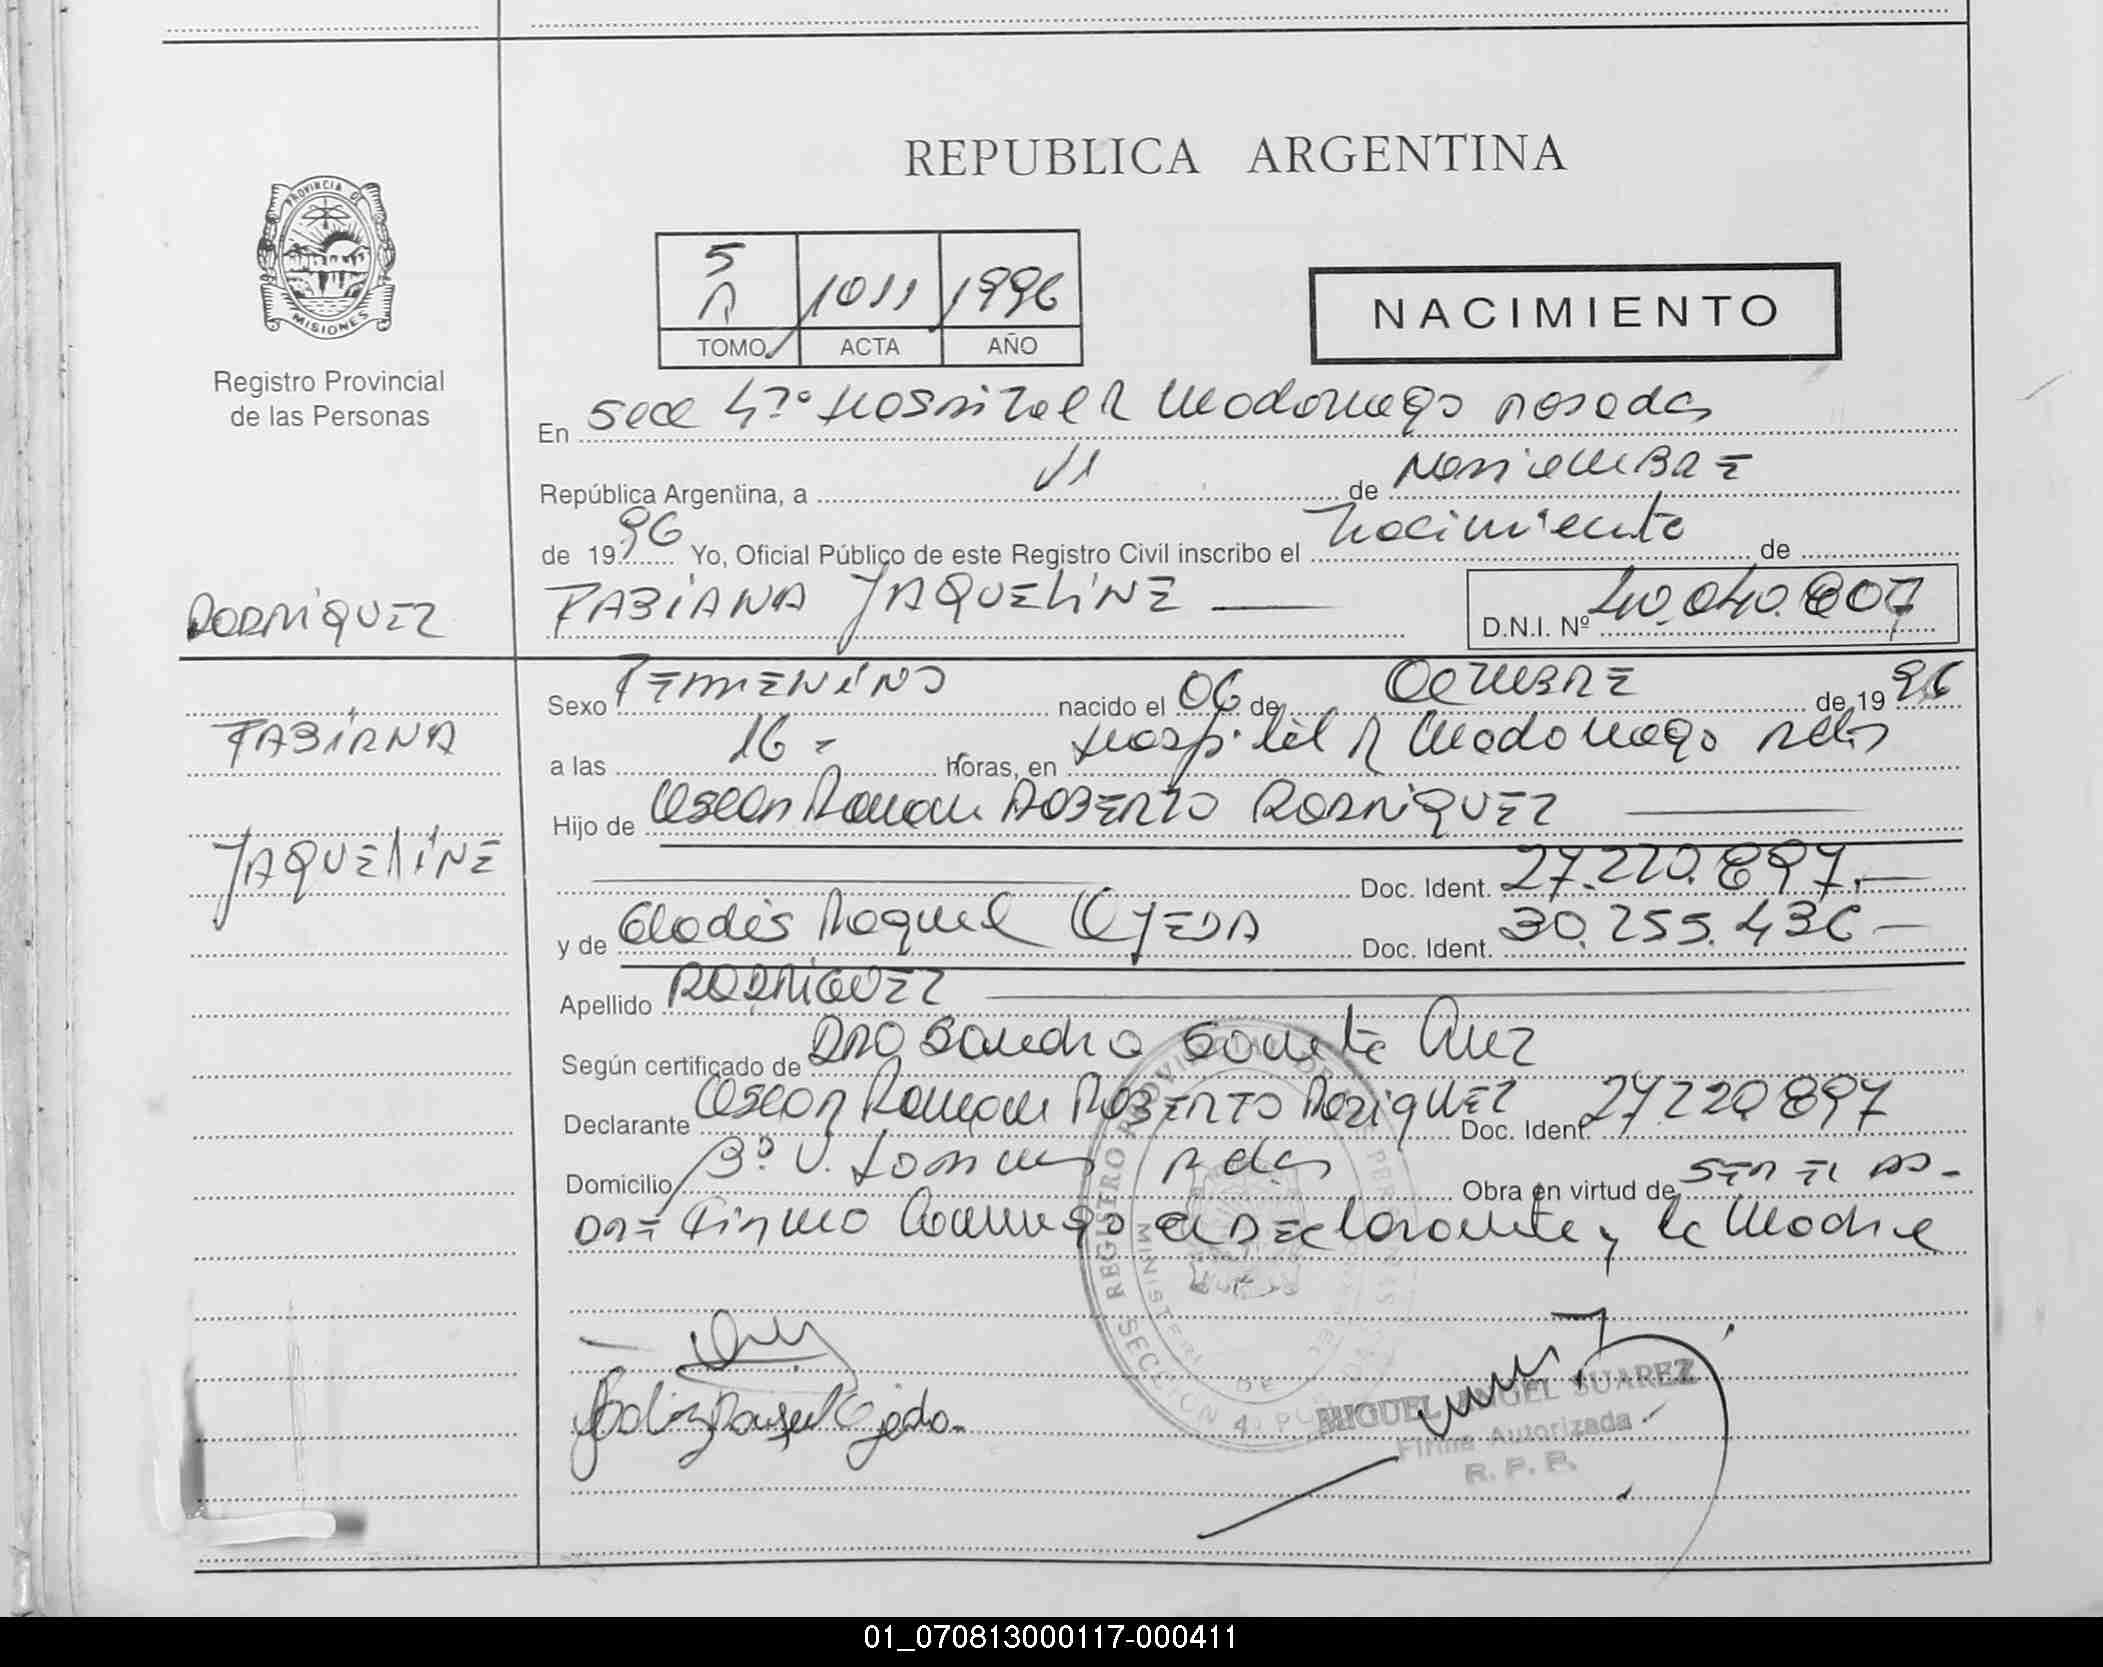 REPUBLICA ARGENTINA
PROVINCIA DE
MISIONES
Registro Provincial
de las Personas
5
1011
1996
TOMO
ACTA
AÑO
NACIMIENTO
En Secc 4ta Hospital R Madariaga Posadas
República Argentina, a 11 de NOVIEMBRE
de 1996 Yo, Oficial Público de este Registro Civil inscribo el Nacimiento de
RODRIGUEZ
FABIANA JAQUELINE
D.N.I. Nº 40.040.807
FABIANA
JAQUELINE
Sexo FEMENINO nacido el 06 de OCTUBRE de 1996
a las 16 - horas, en Hospital R Madariaga Pdas
Hijo de Oscar Ramon ROBERTO RODRIGUEZ
Doc. Ident. 27.220.897.-
y de Gladis Raquel OJEDA Doc. Ident. 30.255.436 -
Apellido RODRIGUEZ
Según certificado de DRA Sandra
Declarante Oscar Ramon ROBERTO Doc. Ident. 27220897
Domicilio Bº V. Pdas Obra en virtud de SER EL PA-
DRE Firma Conmigo el Declarante y la Madre
REGISTRO PROVINCIAL DE LAS PERSONAS
SECCION 4
MIGUEL ANGEL SUAREZ
Firma Autorizada
R. P. P.
01_070813000117-000411